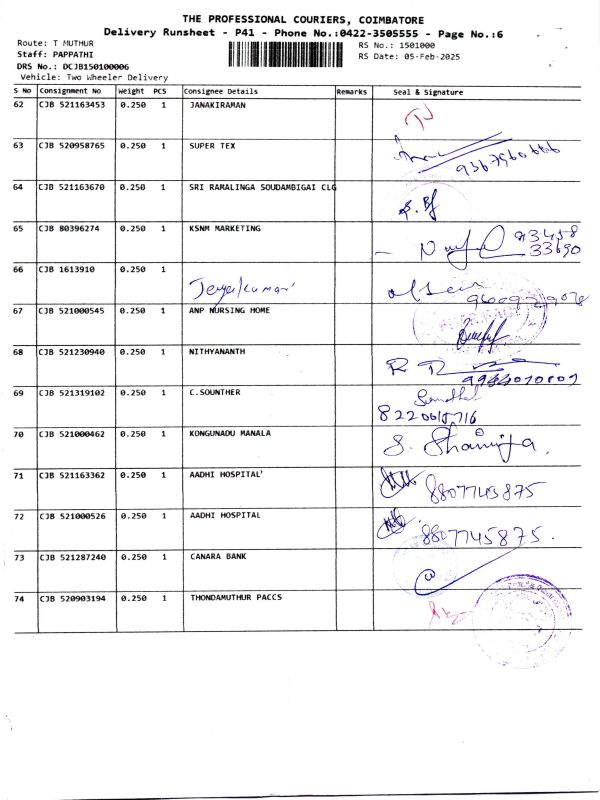 THE PROFESSIONAL COURIERS, COIMBATORE
Delivery Runsheet - P41 - Phone No.:0422-3505555 - Page No.:6
Route: T MUTHUR RS No.: 1501000
Staff: PAPPATHI RS Date: 05-Feb-2025
DRS No.: DCJB150100006
Vehicle: Two Wheeler Delivery
S No Consignment No Weight PCS Consignee Details Remarks Seal & Signature
62 CJB 521163453 0.250 1 JANAKIRAMAN
63 CJB 520958765 0.250 1 SUPER TEX
64 CJB 521163670 0.250 1 SRI RAMALINGA SOUDAMBIGAI CLG
65 CJB 80396274 0.250 1 KSNM MARKETING
66 CJB 1613910 0.250 1 Jeyakumar
67 CJB 521000545 0.250 1 ANP NURSING HOME
68 CJB 521230940 0.250 1 NITHYANANTH
69 CJB 521319102 0.250 1 C.SOUNTHER
70 CJB 521000462 0.250 1 KONGUNADU MANALA
71 CJB 521163362 0.250 1 AADHI HOSPITAL' 8807745875
72 CJB 521000526 0.250 1 AADHI HOSPITAL 8807745875.
73 CJB 521287240 0.250 1 CANARA BANK
74 CJB 520903194 0.250 1 THONDAMUTHUR PACCS